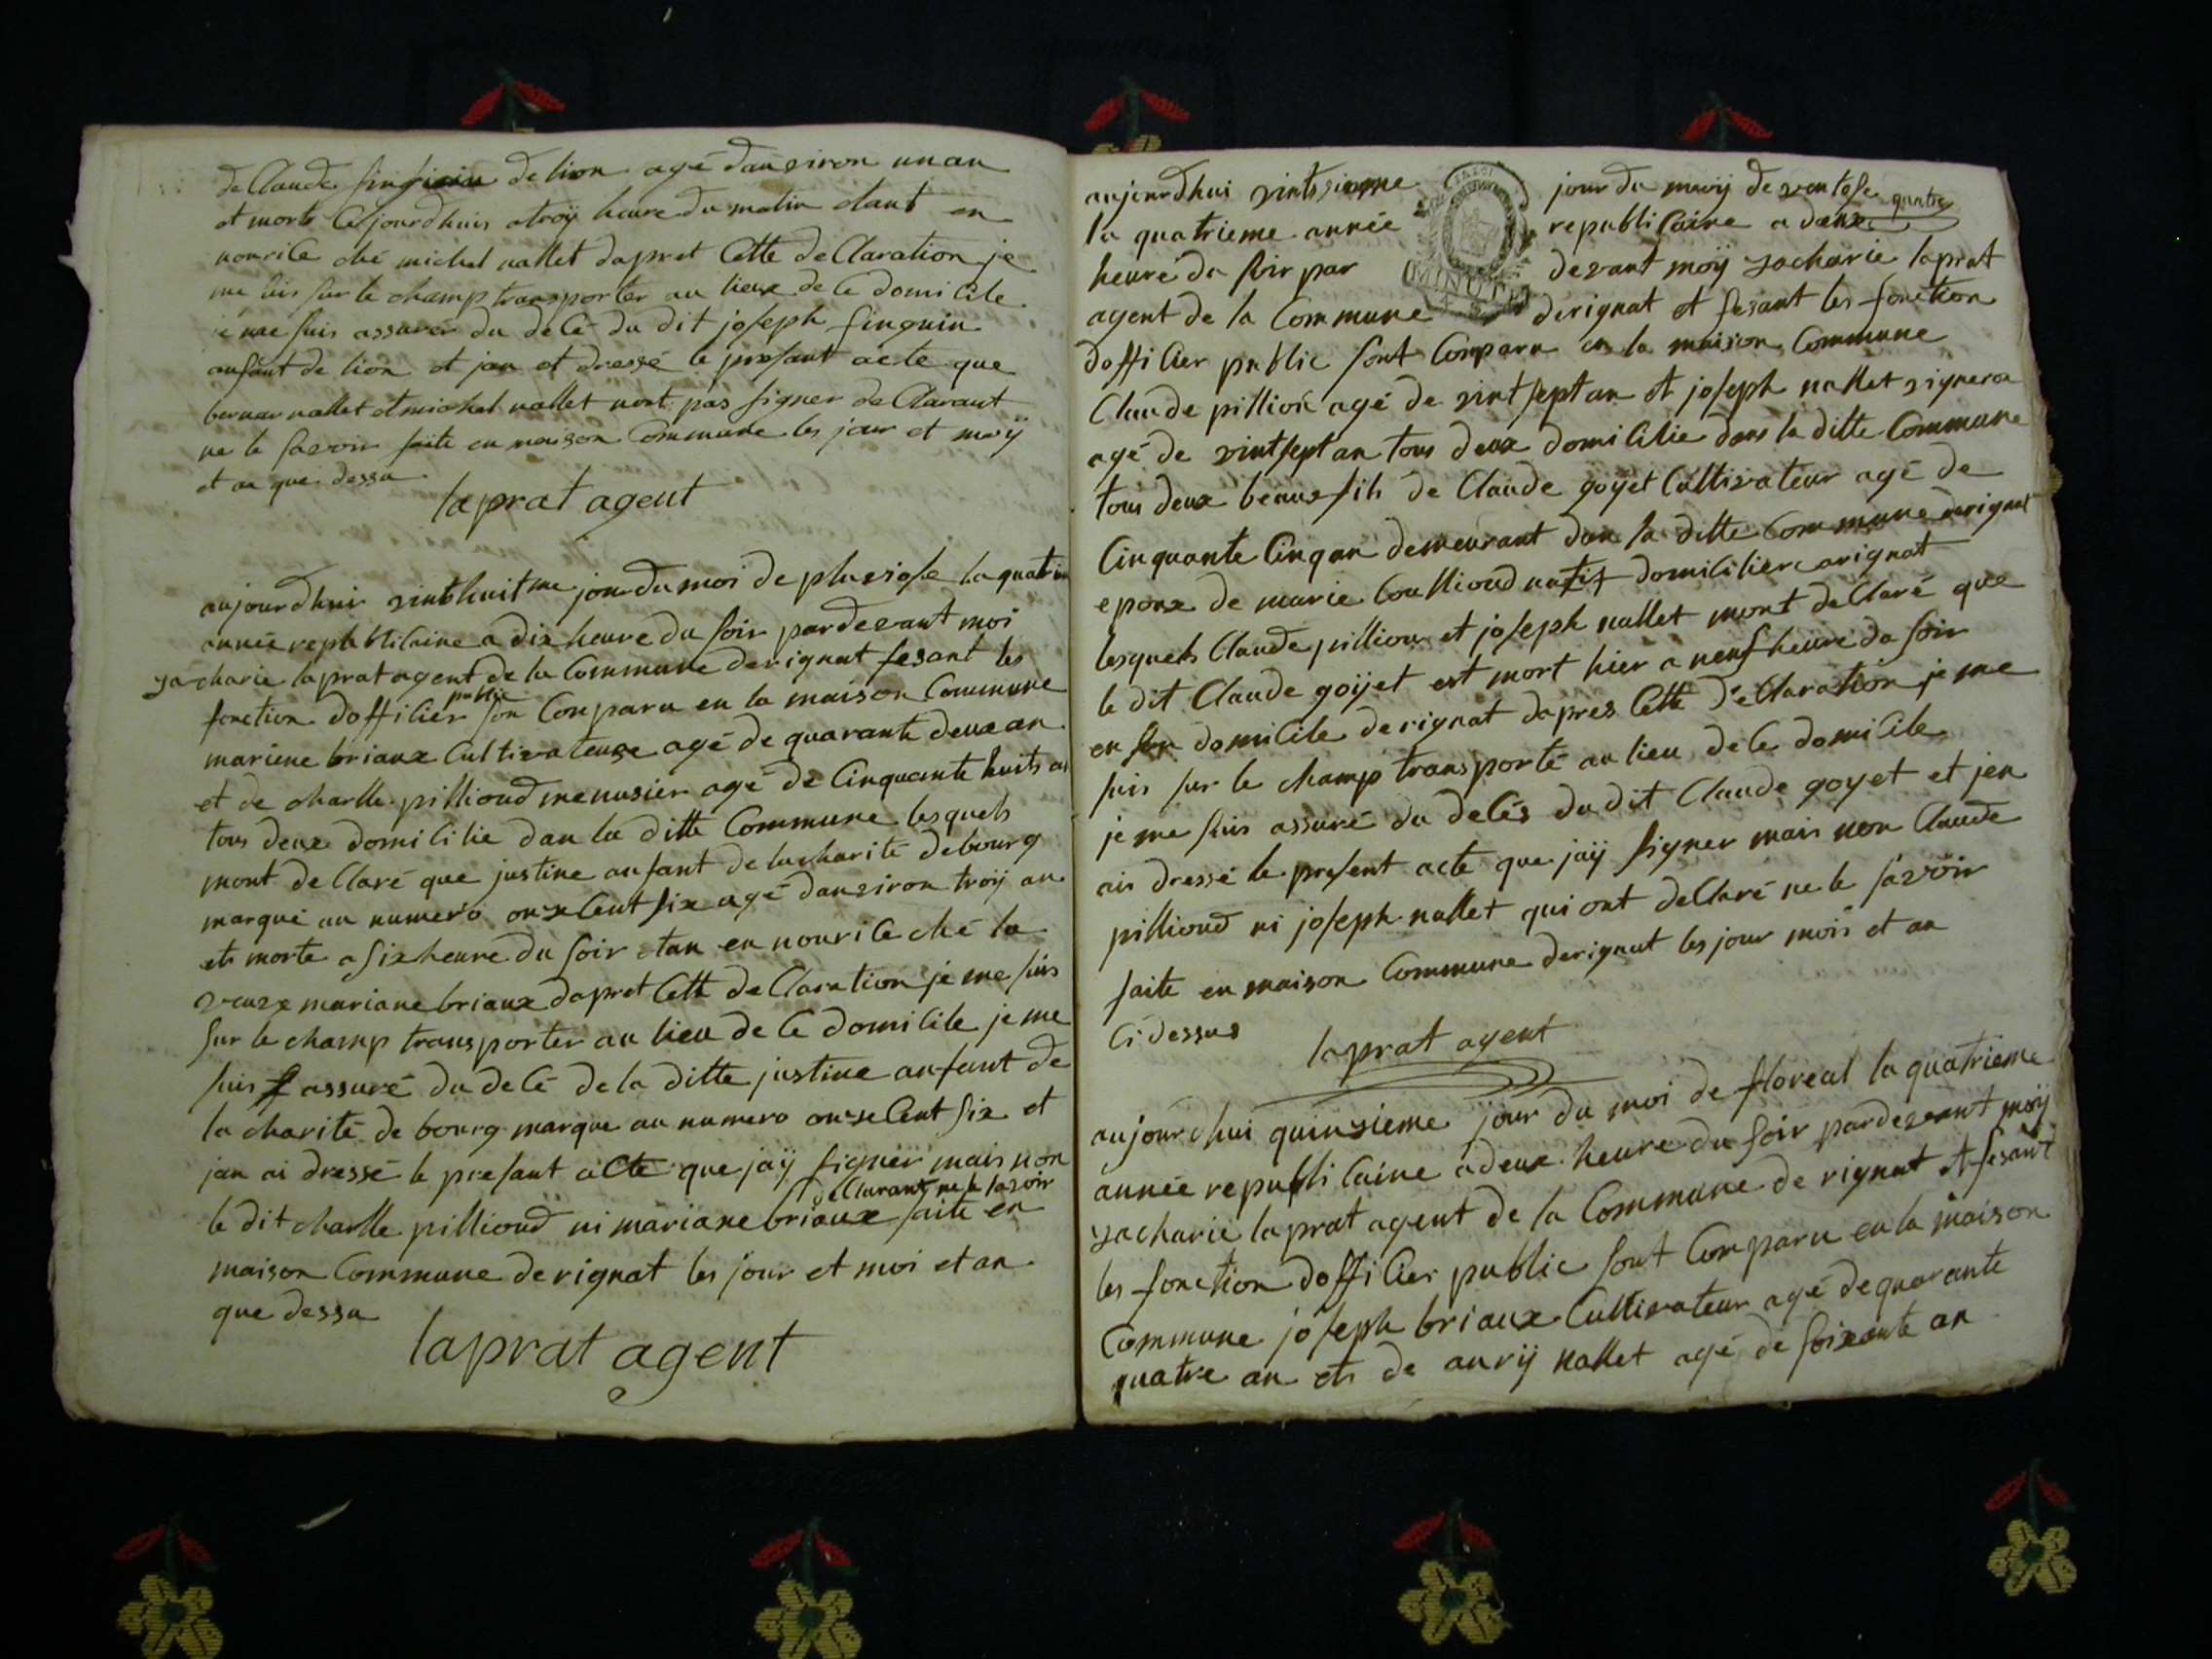 de Claude singuin de lion agé danviron un an
et morte ce jourdhuis a troÿ heure du matin etant en
nourice ché michel nallet dapret Cette deClaration je
me suis sur le champ transporter au lieux de ce domicile
je me suis assurer du decé du dit joseph singuin
anfant de lion et jan et dressé le presant acte que
bernar nallet et michel nallet nont pas signer declarant
ne le savoir faite en maison Commune les jour et moÿ
et an que dessu
laprat agent
aujourdhui vinthuitme jour du mois de pluviose la quatri
année republicaine a dix heure du soir pardevant moi
zacharie laprat agent de la Commune derignat fesant les
fonction dofficier public son Comparu en la maison Commune
mariene briaux Cultivateuse agé de quarante deux an
et de charlle pillioud menusier agé de Cinquante huits an
tous deux domicilie dan la ditte Commune lesquels
mont deClaré que justine anfant de lacharité debourg
marqué au numero onze Cent six agé danviron troÿ an
ets morte a six heure du soir etan en nourice ché la
veuve mariane briaux dapret Cette deClaration je me suis
sur le champ transporter au lieu de ce domicile je me
suis assuré du decé de la ditte justine anfant de
la charité de bourg marque au numero onze Cent six et
jan ai dressé le presant aCte que jaÿ signer mais non
le dit charlle pillioud ni mariane briaux declarant ne le savoir faite en
maison Commune derignat les jour et moi et an
que dessu
laprat agent
aujourdhui jour du moÿ de ventose
la quatrieme année republicaine a quatre
heure du soir par devant moÿ zacharie laprat
agent de la Commune derignat et fesant les fonction
dofficier public sont Comparu en la maison Commune
Claude pillion agé de vint sept an et joseph nallet vigneron
agé de vintsept an tous deux domicilie dans la ditte Commune
tous deux beaux fils de Claude goÿet Cultivateur agé de
Cinquante Cinq an demeurant dan la ditte Commune derignat
epoux de marie Coullioud natif domicilier arignat
lesquels Claude pillion et joseph nallet mont deClaré que
le dit Claude goÿet est mort hier a neuf heure du soir
en son domicile derignat dapres Cette deClaration je me
suis sur le champ transporté au lieu de ce domicile
je me suis assuré du decés du dit Claude goyet et jen
ais dressé le present acte que jaÿ signer mais non Claude
pillioud ni joseph nallet qui ont declaré ne le savoir
faite en maison Commune derignat les jour mois et an
Ci dessus
laprat agent
aujourdhui quinzieme jour du moi de floreal la quatrieme
année republicaine a deux heure du soir pardevant moÿ
zacharie laprat agent de la Commune de rignat et fesant
les fonction dofficier public sont Comparu en la maison
Commune joseph briaux Cultivateur agé de quarante
quatre an ets de anrÿ nallet agé de soixante an